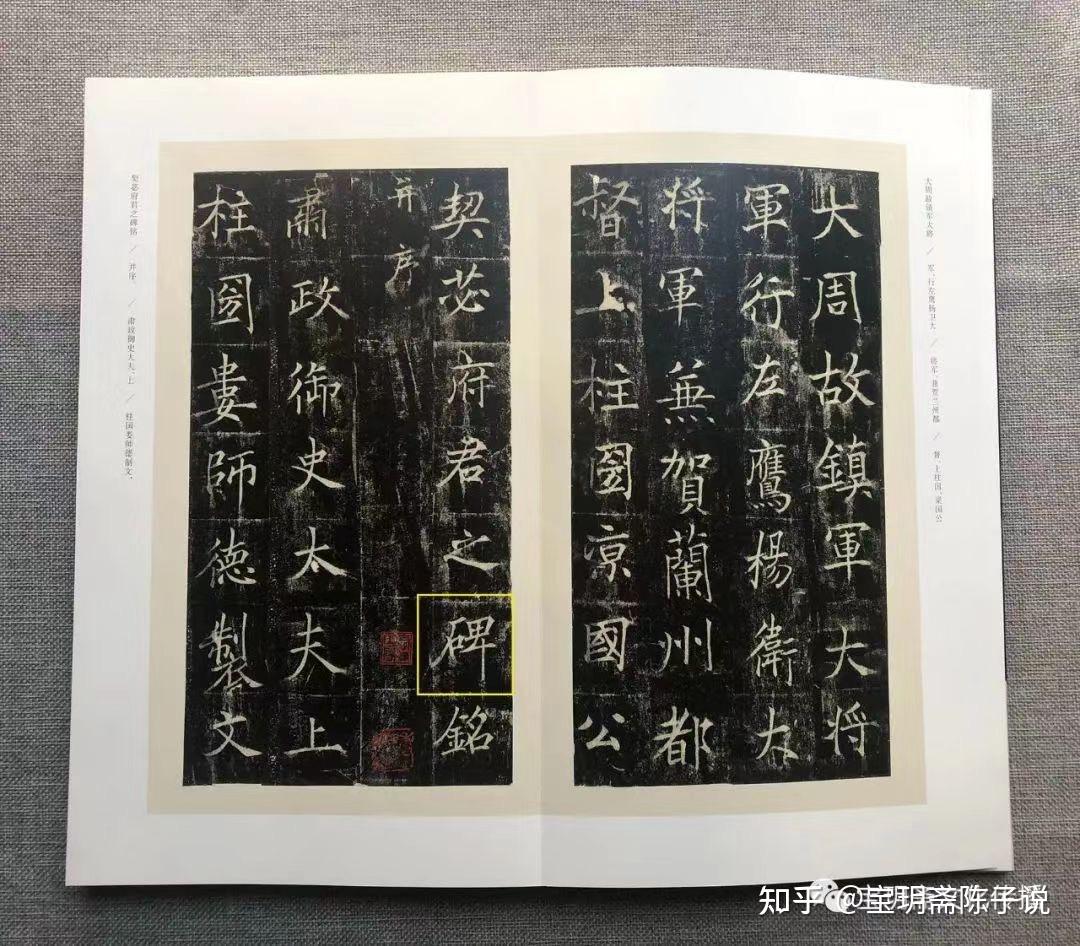 大周故镇军大将 / 军、行左鹰扬卫大 / 将军、兼贺兰州都 / 督、上柱国、凉国公
大周故鎮軍大将
軍行左鷹楊衛大
将軍蒹賀蘭州都
督上柱圀凉國公
契苾府君之碑銘
并序
肅政御史太夫上
柱圀婁師德製文
契苾府君之碑铭 / 并序。 / 肃政御史大夫、上 / 柱国娄师德制文。
知乎 @宝玥斋陈仔说